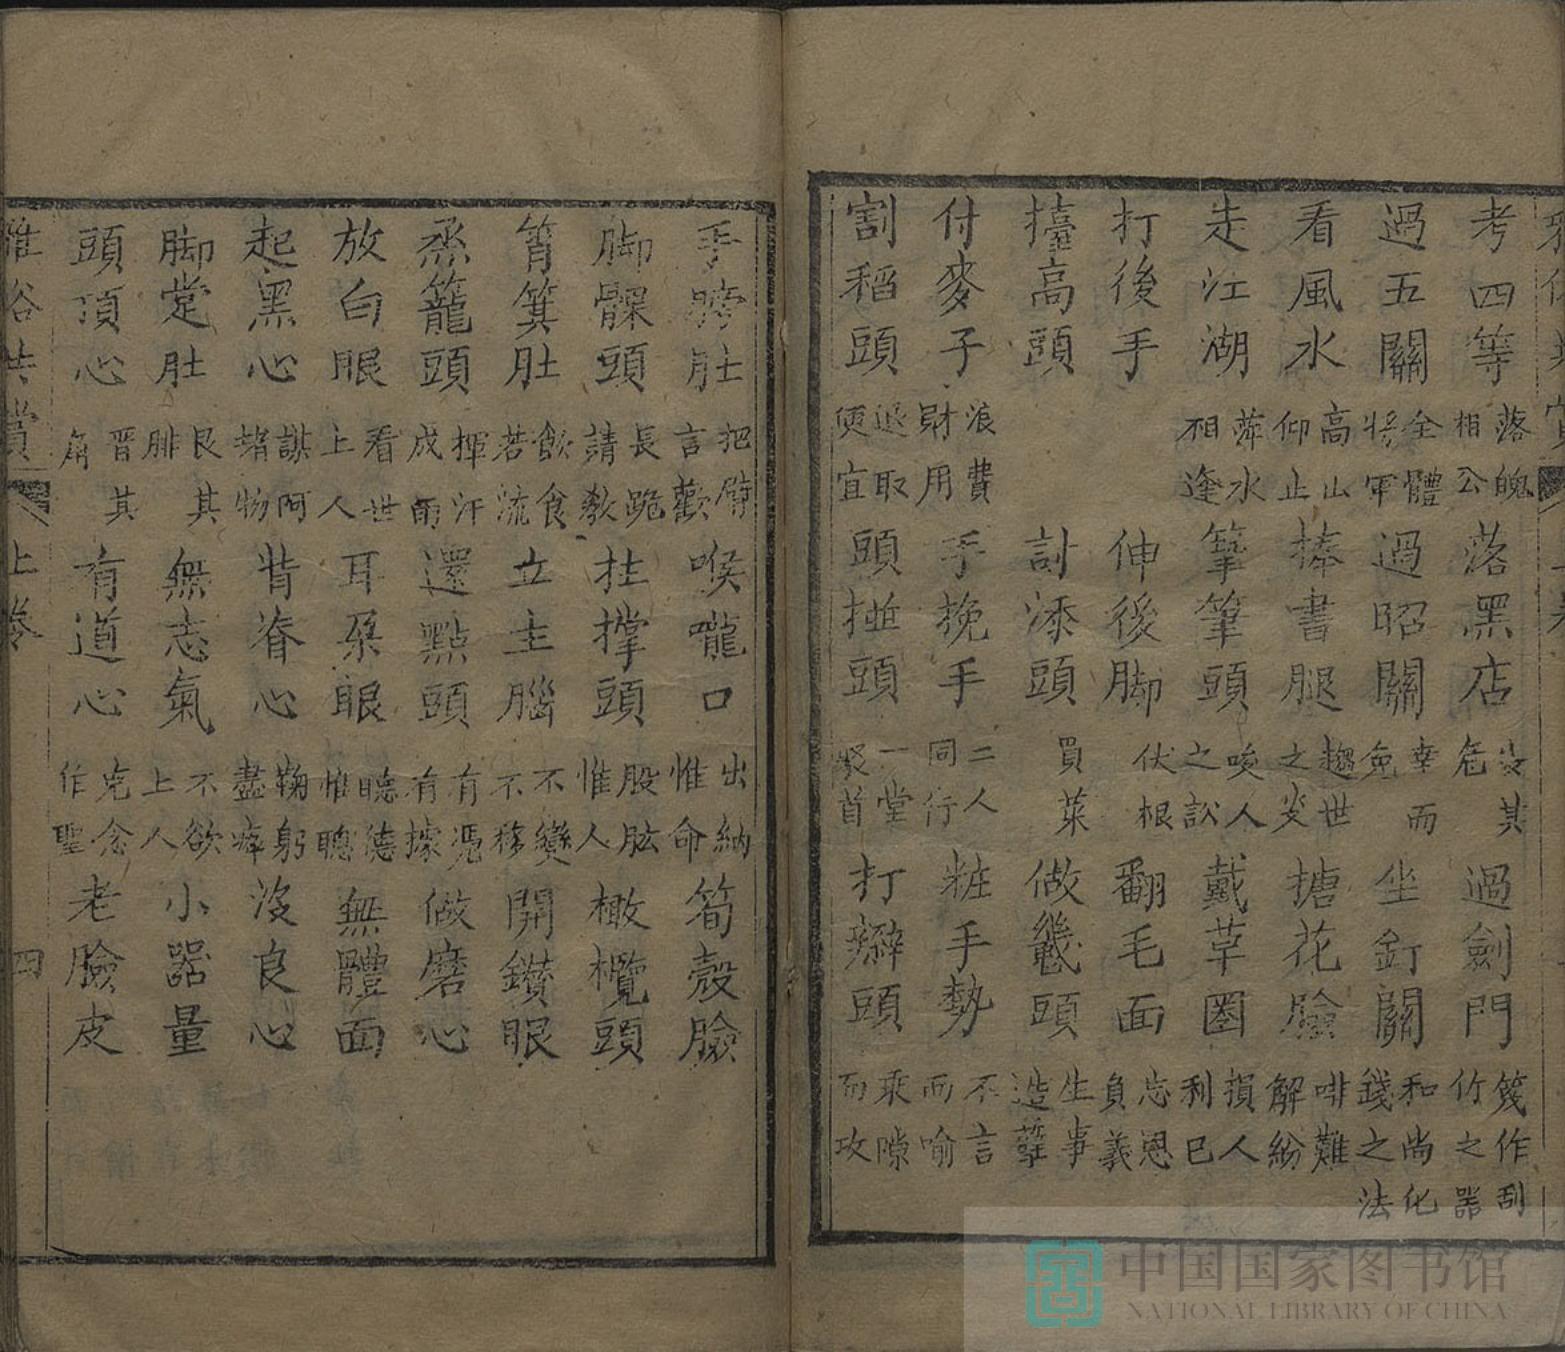 考四等 落魄相公 落黑店 安其危 過劍門 筏作刮竹之器
過五關 全體將軍 過昭關 幸而免 坐釘關 和尚化錢之法
看風水 高山仰止 捧書腿 趨世之炎 搪花臉 啡難解紛
走江湖 萍水相逢 筆筆頭 唆人之訟 戴草圈 損人利己
打後手 伸後脚 伏根 翻毛面 忘恩負義
擡高頭 討添頭 買菜 做甏頭 生事造孽
付麥子 浪費財用 手挽手 二人同行 粧手勢 不言而喻
割稻頭 退取便宜 頭碰頭 一堂聚首 打辮頭 乘隙而攻
手膀肚 把臂言歡 喉嚨口 出納惟命 筍殼臉
脚髁頭 長跪請教 拄撑頭 股肱惟人 橄欖頭
筲箕肚 飲食若流 立主腦 不變不移 開鑽眼
烝籠頭 揮汗成雨 還點頭 有憑有據 做磨心
放白眼 看世上人 耳朶眼 聽德惟聰 無體面
起黑心 謀阿堵物 背脊心 鞠躬盡瘁 没良心
脚堂肚 艮其腓 無志氣 不欲上人 小器量
頭頂心 晋其角 有道心 克念作聖 老臉皮
雅俗共賞 上卷 四
中国国家图书馆
NATIONAL LIBRARY OF CHINA